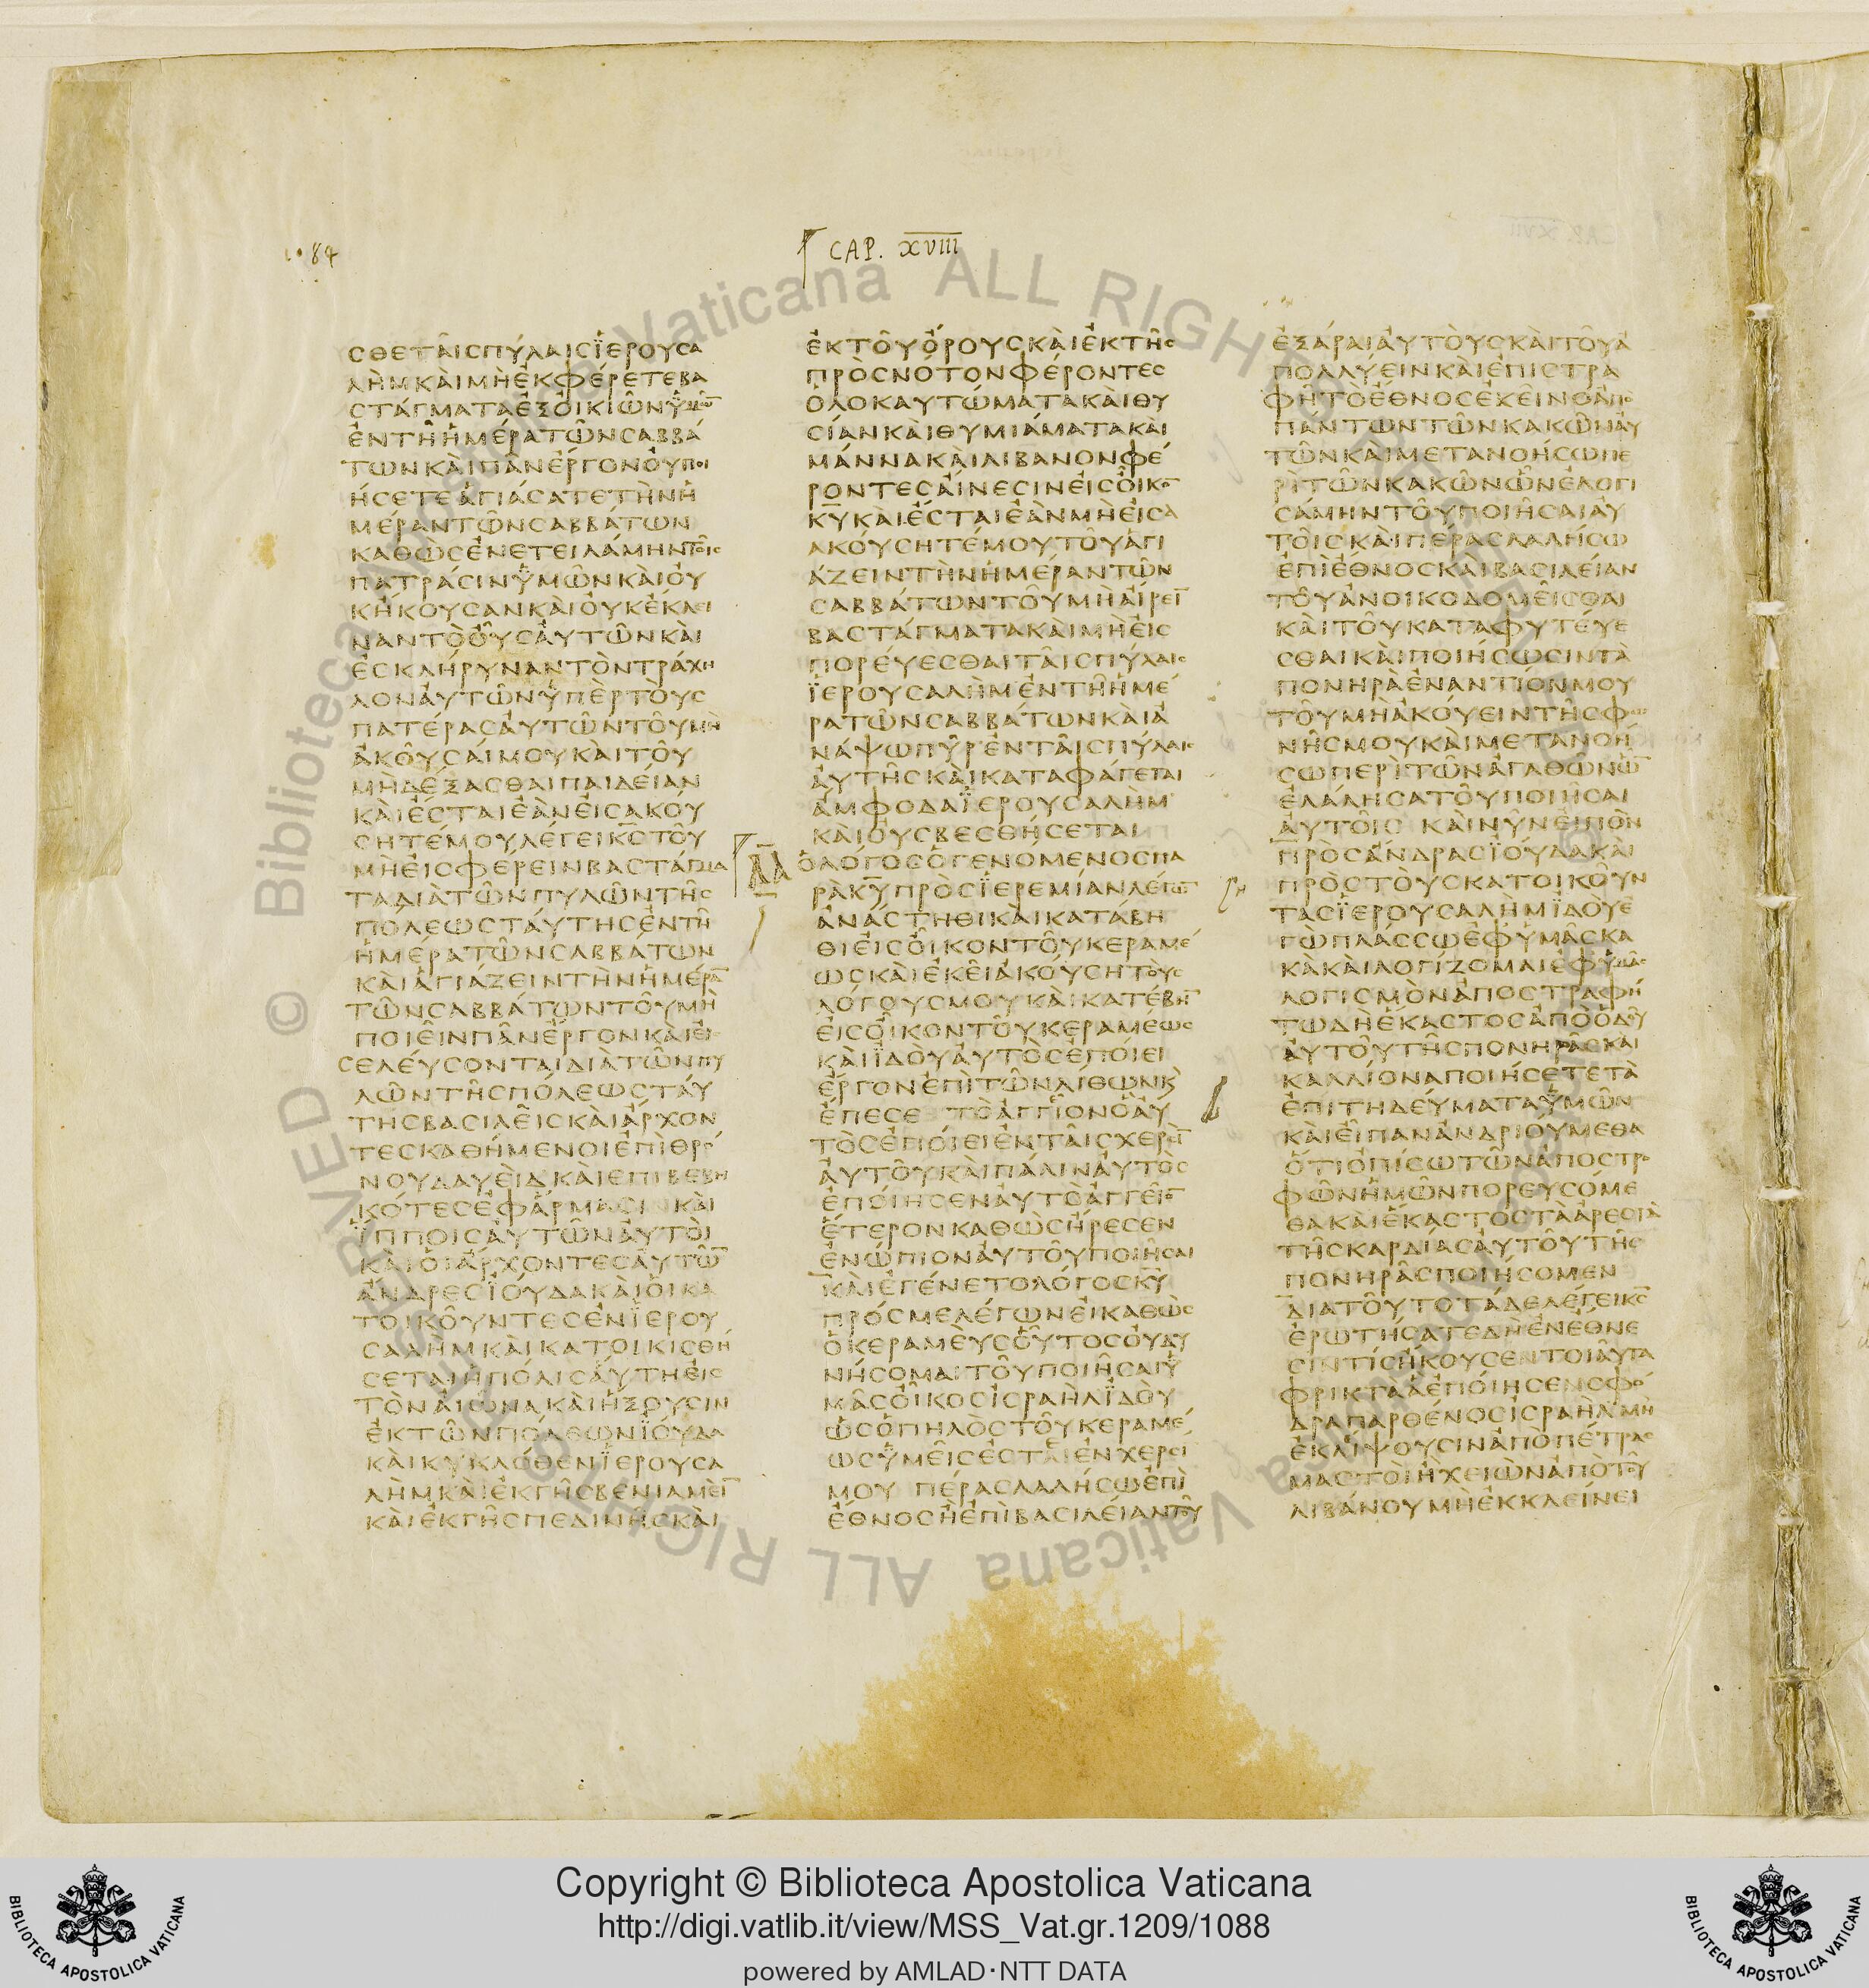 1084
CAP. XVIII
ϹΘΕΤΑΙϹΠΥΛΑΙϹΪΕΡΟΥϹΑ
ΛΗΜΚΑΙΜΗΕΚΦΕΡΕΤΕΒΑ
ϹΤΑΓΜΑΤΑΕΞΟΙΚΙΩΝΫΜΩ̅
ΕΝΤΗΗΜΕΡΑΤΩΝϹΑΒΒΑ
ΤΩΝΚΑΙΠΑΝΕΡΓΟΝΟΥΠΟΙ
ΗϹΕΤΕΑΓΙΑϹΑΤΕΤΗΝΗ
ΜΕΡΑΝΤΩΝϹΑΒΒΑΤΩΝ
ΚΑΘΩϹΕΝΕΤΕΙΛΑΜΗΝΤΟΙϹ
ΠΑΤΡΑϹΙΝΫΜΩΝΚΑΙΟΥ
ΚΗΚΟΥϹΑΝΚΑΙΟΥΚΕΚΛΕΙ
ΝΑΝΤΟΟΥϹΑΥΤΩΝΚΑΙ
ΕϹΚΛΗΡΥΝΑΝΤΟΝΤΡΑΧΗ
ΛΟΝΑΥΤΩΝΫΠΕΡΤΟΥϹ
ΠΑΤΕΡΑϹΑΥΤΩΝΤΟΥΜΗ
ΑΚΟΥϹΑΙΜΟΥΚΑΙΤΟΥ
ΜΗΔΕΞΑϹΘΑΙΠΑΙΔΕΙΑΝ
ΚΑΙΕϹΤΑΙΕΑΝΕΙϹΑΚΟΥ
ϹΗΤΕΜΟΥΛΕΓΕΙΚ̅Ϲ̅ΤΟΥ
ΜΗΕΙϹΦΕΡΕΙΝΒΑϹΤΑΓΜΑ
ΤΑΔΙΑΤΩΝΠΥΛΩΝΤΗϹ
ΠΟΛΕΩϹΤΑΥΤΗϹΕΝΤΗ
ΗΜΕΡΑΤΩΝϹΑΒΒΑΤΩΝ
ΚΑΙΑΓΙΑΖΕΙΝΤΗΝΗΜΕΡΑ̅
ΤΩΝϹΑΒΒΑΤΩΝΤΟΥΜΗ
ΠΟΙΕΙΝΠΑΝΕΡΓΟΝΚΑΙΕΙ
ϹΕΛΕΥϹΟΝΤΑΙΔΙΑΤΩΝΠΥ
ΛΩΝΤΗϹΠΟΛΕΩϹΤΑΥ
ΤΗϹΒΑϹΙΛΕΙϹΚΑΙΑΡΧΟΝ
ΤΕϹΚΑΘΗΜΕΝΟΙΕΠΙΘΡΟ
ΝΟΥΔΑΥΕΙΔΚΑΙΕΠΙΒΕΒΗ
ΚΟΤΕϹΕΦΑΡΜΑϹΙΝΚΑΙ
ΪΠΠΟΙϹΑΥΤΩΝΑΥΤΟΙ
ΚΑΙΟΙΑΡΧΟΝΤΕϹΑΥΤΩ̅
ΑΝΔΡΕϹΪΟΥΔΑΚΑΙΟΙΚΑ
ΤΟΙΚΟΥΝΤΕϹΕΝΪΕΡΟΥ
ϹΑΛΗΜΚΑΙΚΑΤΟΙΚΙϹΘΗ
ϹΕΤΑΙΗΠΟΛΙϹΑΥΤΗΕΙϹ
ΤΟΝΑΙΩΝΑΚΑΙΗΞΟΥϹΙΝ
ΕΚΤΩΝΠΟΛΕΩΝΪΟΥΔΑ
ΚΑΙΚΥΚΛΟΘΕΝΪΕΡΟΥϹΑ
ΛΗΜΚΑΙΕΚΓΗϹΒΕΝΙΑΜΕΙ̅
ΚΑΙΕΚΓΗϹΠΕΔΙΝΗϹΚΑΙ
ΕΚΤΟΥΟΡΟΥϹΚΑΙΕΚΤΗϹ
ΠΡΟϹΝΟΤΟΝΦΕΡΟΝΤΕϹ
ΟΛΟΚΑΥΤΩΜΑΤΑΚΑΙΘΥ
ϹΙΑΝΚΑΙΘΥΜΙΑΜΑΤΑΚΑΙ
ΜΑΝΝΑΚΑΙΛΙΒΑΝΟΝΦΕ
ΡΟΝΤΕϹΑΙΝΕϹΙΝΕΙϹΟΙΚΟ̅
Κ̅Υ̅ΚΑΙΕϹΤΑΙΕΑΝΜΗΕΙϹΑ
ΑΚΟΥϹΗΤΕΜΟΥΤΟΥΑΓΙ
ΑΖΕΙΝΤΗΝΗΜΕΡΑΝΤΩΝ
ϹΑΒΒΑΤΩΝΤΟΥΜΗΑΙΡΕΙ̅
ΒΑϹΤΑΓΜΑΤΑΚΑΙΜΗΕΙϹ
ΠΟΡΕΥΕϹΘΑΙΤΑΙϹΠΥΛΑΙϹ
ΪΕΡΟΥϹΑΛΗΜΕΝΤΗΗΜΕ
ΡΑΤΩΝϹΑΒΒΑΤΩΝΚΑΙΑ
ΝΑΨΩΠΥΡΕΝΤΑΙϹΠΥΛΑΙϹ
ΑΥΤΗϹΚΑΙΚΑΤΑΦΑΓΕΤΑΙ
ΑΜΦΟΔΑΪΕΡΟΥϹΑΛΗΜ
ΚΑΙΟΥϹΒΕϹΘΗϹΕΤΑΙ
ΟΛΟΓΟϹΟΓΕΝΟΜΕΝΟϹΠΑ
ΡΑΚ̅Υ̅ΠΡΟϹΪΕΡΕΜΙΑΝΛΕΓΩ̅
ΑΝΑϹΤΗΘΙΚΑΙΚΑΤΑΒΗ
ΘΙΕΙϹΟΙΚΟΝΤΟΥΚΕΡΑΜΕ
ΩϹΚΑΙΕΚΕΙΑΚΟΥϹΗΤΟΥϹ
ΛΟΓΟΥϹΜΟΥΚΑΙΚΑΤΕΒΗ̅
ΕΙϹΟΙΚΟΝΤΟΥΚΕΡΑΜΕΩϹ
ΚΑΙΪΔΟΥΑΥΤΟϹΕΠΟΙΕΙ
ΕΡΓΟΝΕΠΙΤΩΝΛΙΘΩΝΚ
ΕΠΕϹΕ ΤΟΑΓΓΙΟΝΟΑΥ
ΤΟϹΕΠΟΙΕΙΕΝΤΑΙϹΧΕΡϹΙ̅
ΑΥΤΟΥΚΑΙΠΑΛΙΝΑΥΤΟϹ
ΕΠΟΙΗϹΕΝΑΥΤΟΑΓΓΕΙΟ̅
ΕΤΕΡΟΝΚΑΘΩϹΗΡΕϹΕΝ
ΕΝΩΠΙΟΝΑΥΤΟΥΠΟΙΗϹΑΙ
ΚΑΙΕΓΕΝΕΤΟΛΟΓΟϹΚ̅Υ̅
ΠΡΟϹΜΕΛΕΓΩΝΕΙΚΑΘΩϹ
ΟΚΕΡΑΜΕΥϹΟΥΤΟϹΟΥΔΥ
ΝΗϹΟΜΑΙΤΟΥΠΟΙΗϹΑΙΫ
ΜΑϹΟΙΚΟϹΙϹΡΑΗΛΪΔΟΥ
ΩϹΟΠΗΛΟϹΤΟΥΚΕΡΑΜΕ
ΩϹΫΜΕΙϹΕϹΤΑΙΕΝΧΕΡϹΙ
ΜΟΥ ΠΕΡΑϹΛΑΛΗϹΩΕΠΙ
ΕΘΝΟϹΗΕΠΙΒΑϹΙΛΕΙΑΝΤΟΥ
ΕΞΑΡΑΙΑΥΤΟΥϹΚΑΙΤΟΥΑ
ΠΟΛΛΥΕΙΝΚΑΙΕΠΙϹΤΡΑ
ΦΗΤΟΕΘΝΟϹΕΚΕΙΝΟΑΠΟ
ΠΑΝΤΩΝΤΩΝΚΑΚΩΝΑΥ
ΤΩΝΚΑΙΜΕΤΑΝΟΗϹΩΠΕ
ΡΙΤΩΝΚΑΚΩΝΩΝΕΛΟΓΙ
ϹΑΜΗΝΤΟΥΠΟΙΗϹΑΙΑΥ
ΤΟΙϹΚΑΙΠΕΡΑϹΛΑΛΗϹΩ
ΕΠΙΕΘΝΟϹΚΑΙΒΑϹΙΛΕΙΑΝ
ΤΟΥΑΝΟΙΚΟΔΟΜΕΙϹΘΑΙ
ΚΑΙΤΟΥΚΑΤΑΦΥΤΕΥΕ
ϹΘΑΙΚΑΙΠΟΙΗϹΩϹΙΝΤΑ
ΠΟΝΗΡΑΕΝΑΝΤΙΟΝΜΟΥ
ΤΟΥΜΗΑΚΟΥΕΙΝΤΗϹΦΩ
ΝΗϹΜΟΥΚΑΙΜΕΤΑΝΟΗ
ϹΩΠΕΡΙΤΩΝΑΓΑΘΩΝΩ̅
ΕΛΑΛΗϹΑΤΟΥΠΟΙΗϹΑΙ
ΑΥΤΟΙϹ ΚΑΙΝΥΝΕΙΠΟΝ
ΠΡΟϹΑΝΔΡΑϹΪΟΥΔΑΚΑΙ
ΠΡΟϹΤΟΥϹΚΑΤΟΙΚΟΥΝ
ΤΑϹΪΕΡΟΥϹΑΛΗΜΪΔΟΥΕ
ΓΩΠΛΑϹϹΩΕΦΫΜΑϹΚΑ
ΚΑΚΑΙΛΟΓΙΖΟΜΑΙΕΦΫΜΑϹ
ΛΟΓΙϹΜΟΝΑΠΟϹΤΡΑΦΗ
ΤΩΔΗΕΚΑϹΤΟϹΑΠΟΟΔΟΥ
ΑΥΤΟΥΤΗϹΠΟΝΗΡΑϹΚΑΙ
ΚΑΛΛΙΟΝΑΠΟΙΗϹΕΤΕΤΑ
ΕΠΙΤΗΔΕΥΜΑΤΑΫΜΩΝ
ΚΑΙΕΙΠΑΝΑΝΔΡΙΟΥΜΕΘΑ
ΟΤΙΟΠΙϹΩΤΩΝΑΠΟϹΤΡΟ
ΦΩΝΗΜΩΝΠΟΡΕΥϹΟΜΕ
ΘΑΚΑΙΕΚΑϹΤΟϹΤΑΑΡΕϹΤΑ
ΤΗϹΚΑΡΔΙΑϹΑΥΤΟΥΤΗϹ
ΠΟΝΗΡΑϹΠΟΙΗϹΟΜΕΝ
ΔΙΑΤΟΥΤΟΤΑΔΕΛΕΓΕΙΚ̅Ϲ̅
ΕΡΩΤΗϹΑΤΕΔΗΕΝΕΘΝΕ
ϹΙΝΤΙϹΗΚΟΥϹΕΝΤΟΙΑΥΤΑ
ΦΡΙΚΤΑΑΕΠΟΙΗϹΕΝϹΦΟ
ΔΡΑΠΑΡΘΕΝΟϹΙϹΡΑΗΛΜΗ
ΕΚΛΙΨΟΥϹΙΝΑΠΟΠΕΤΡΑϹ
ΜΑϹΤΟΙΗΧΕΙΩΝΑΠΟΤΟΥ
ΛΙΒΑΝΟΥΜΗΕΚΚΛΕΙΝΕΙ
Biblioteca Apostolica Vaticana ALL RIGHTS RESERVED ©
Copyright © Biblioteca Apostolica Vaticana
http://digi.vatlib.it/view/MSS_Vat.gr.1209/1088
powered by AMLAD·NTT DATA
BIBLIOTECA APOSTOLICA VATICANA
BIBLIOTECA APOSTOLICA VATICANA